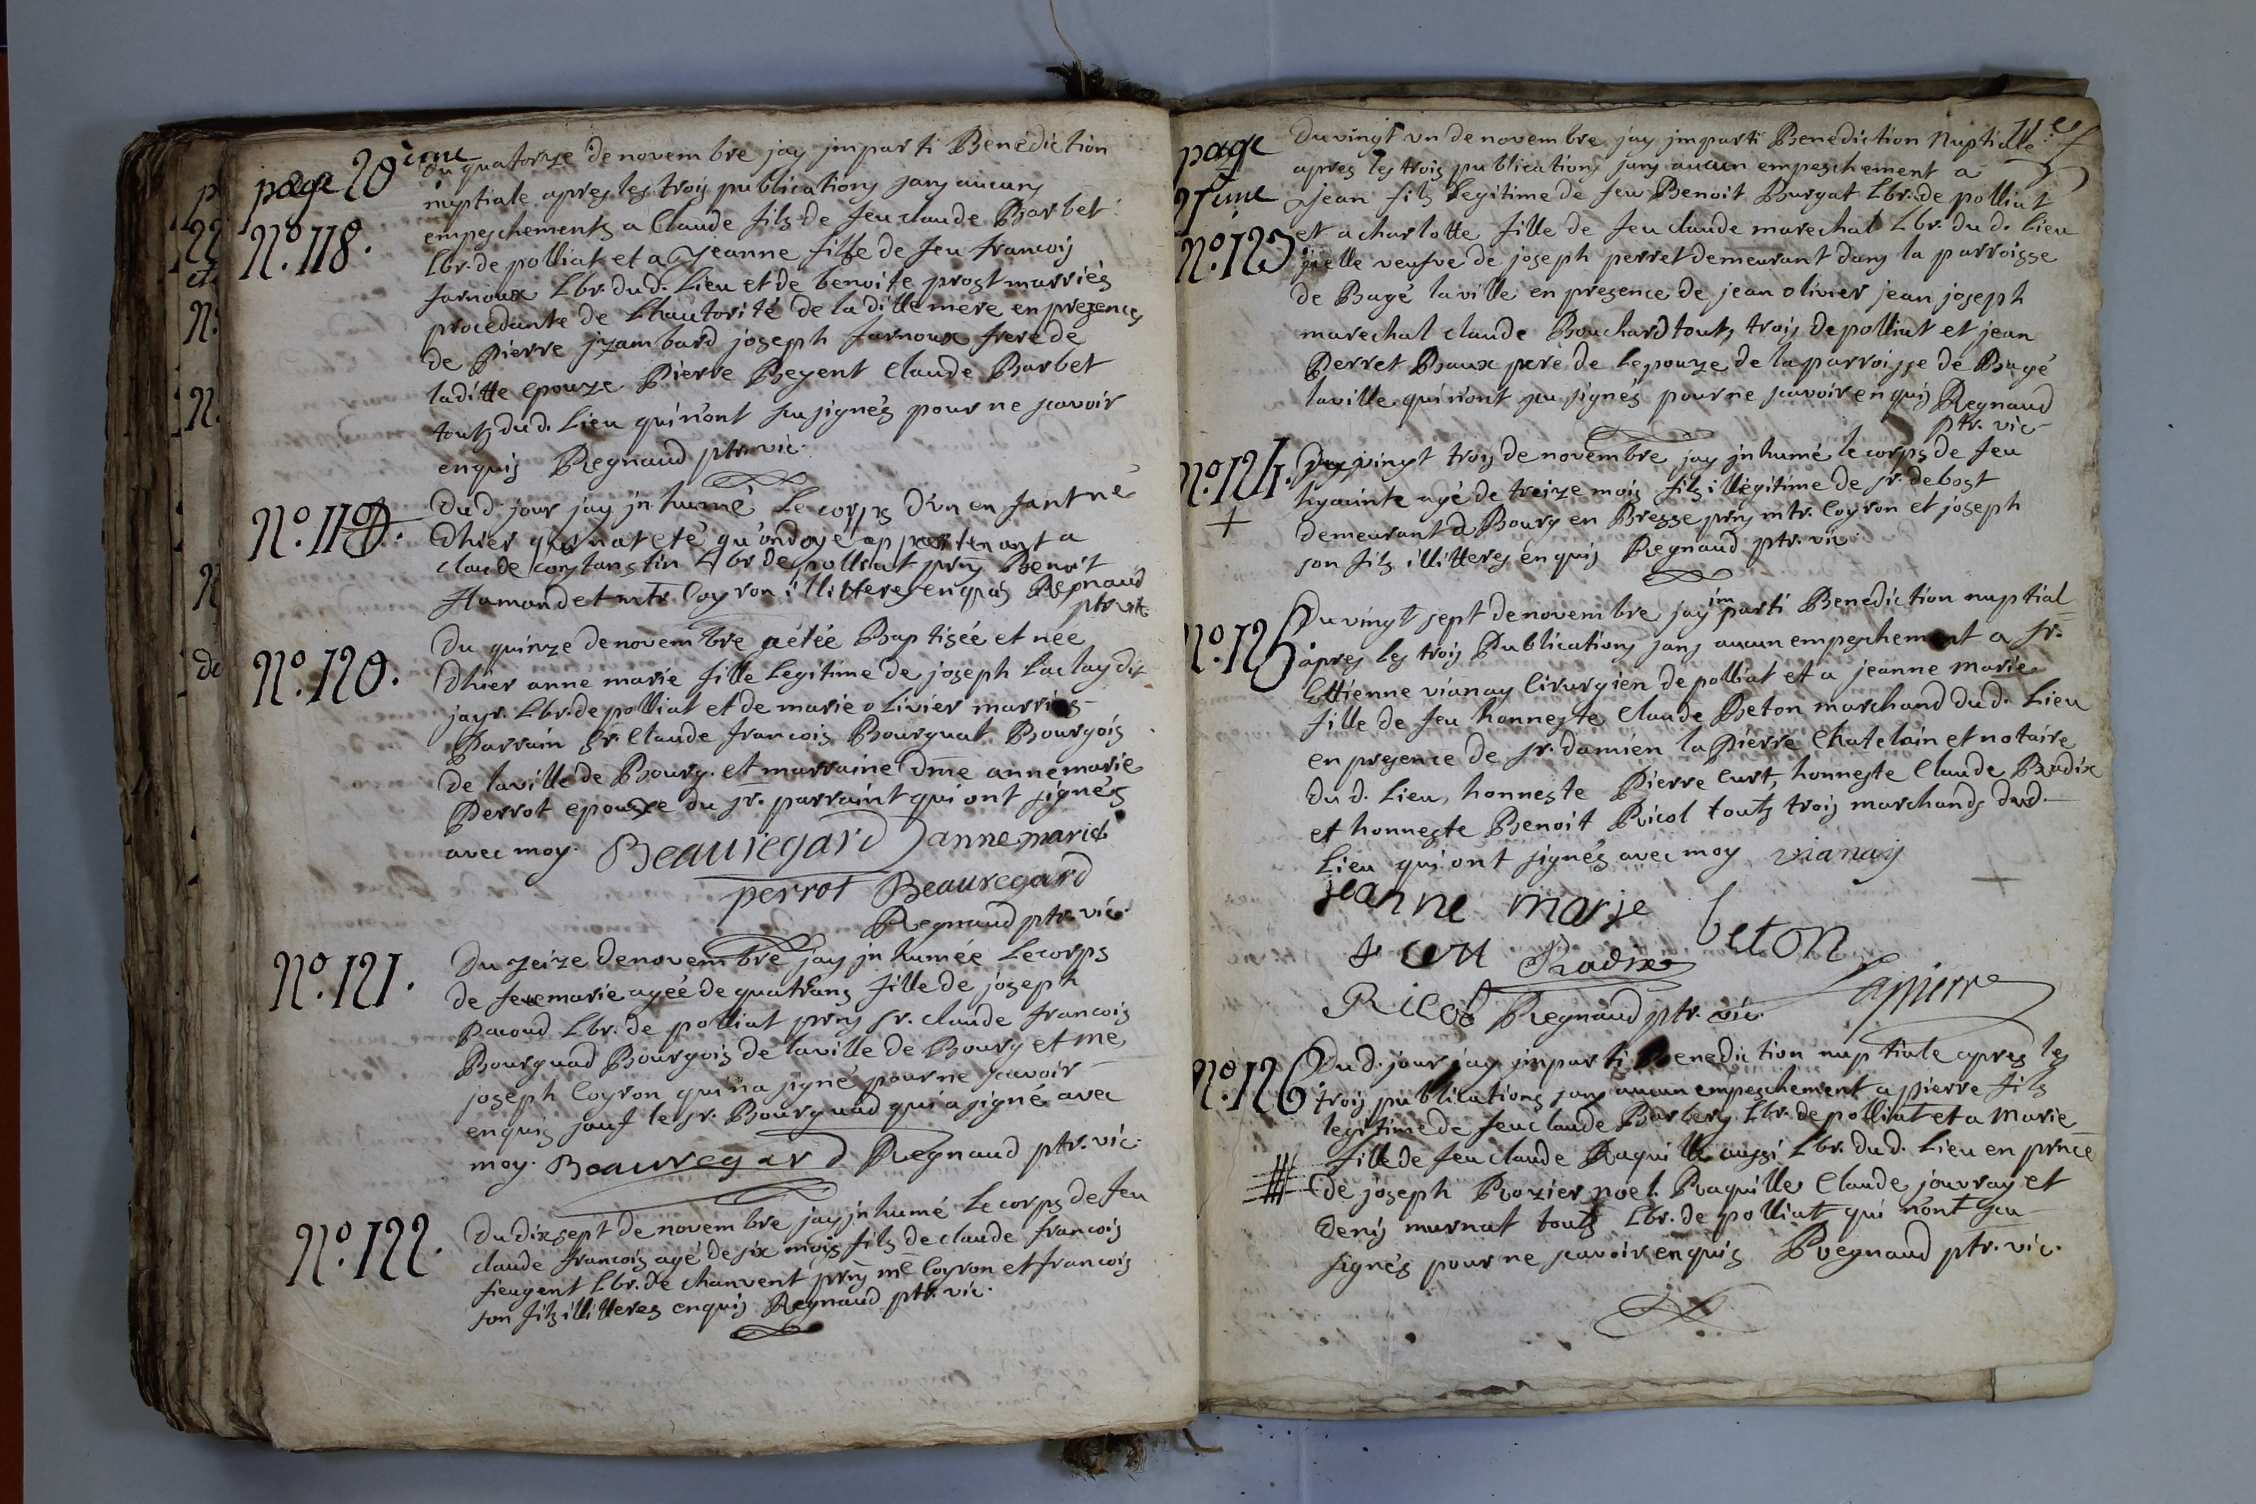 page 20ème
N.º 118.
du quatorze de novembre jay jmparti Benediction
nuptiale apres les trois publications sans aucuns
empeschements a Claude fils de feu claude Barbet
Lbr. de polliat et a Jeanne fille de feu francois
farnoux Lbr. du d. Lieu et de benoite prost marriés
procedante de Lhautorité de la ditte mere en presences
de Pierre jzambard joseph farnoux frere de
laditte epouze Pierre Beyent Claude Barbet
touts du d. Lieu qui n'ont sçu signés pour ne scavoir
enquis Regnaud ptr. vic.
N.º 119.
Du d. jour jay jnhumé Le corps d'un enfant né
dhier qui n'at eté qu'ondoyé appartenant a
claude constanstin Lbr de polliat prns Benoit
flamand et mtr. Coyron illitteres enquis Regnaud
ptr. vic.
N.º 120.
Du quinze de novembre a étée Baptisée et née
dhier anne marie fille Legitime de joseph Laclay dit
jayr. Lbr. de polliat et de marie olivier marriés
Parrain Sr. Claude francois Bourguat Bourgois
de la ville de Bourg. et marraine dme anne marie
Perrot epouze du sr. parraint qui ont signés
avec moy. Beauregard anne marie
perrot Beauregard
Regnaud ptr. vic.
N.º 121.
Du zeize de novembre jay jnhumée Le corps
de feue marie agéé de quatr'ans fille de joseph
Pacoud Lbr. de polliat prns sr. claude francois
Bourguad Bourgois de la ville de Bourg et me
joseph Coyron qui n'a signé pour ne scavoir
enquis sauf le sr. Bourguad qui a signé avec
moy. Beauregard Regnaud ptr. vic.
N.º 122.
Du dixsept de novembre jay jnhumé Le corps de feu
claude francois agé de six mois fils de claude francois
feugent Lbr. de chanvent prns me Coyron et francois
son fils illitteres enquis Regnaud ptr. vic.
page
21eme
N.º 123
Du vingt un de novembre jay jmparti Benediction Nuptialle
apres les trois publications sans aucun empeschement a
Jean fils Legitime de feu Benoit Burgat Lbr. de polliat
et a charlotte fille de feu claude marechal Lbr. du d. Lieu
jcelle veufve de joseph perret demeurant dans la parroisse
de Bagé la ville en presence de jean olivier jean joseph
marechal claude Bouchard touts trois de polliat et jean
Perret Baux pere de Lepouze de la parroisse de Bagé
la ville qui n'ont sçu signés pour ne scavoir enquis Regnaud
ptr. vic
N.º 124.
Du vingt trois de novembre jay jnhumé le corps de feu
hyacinte agé de treize mois fils illégitime de sr. debost
demeurant a Bourg en Bresse prns mtr. Coyron et joseph
son fils illitteres enquis Regnaud ptr. vic.
N.º 125
Du vingt sept de novembre jay imparti Benediction nuptial
apres les trois Publications sans aucun empeschement a sr.
Ettienne vianay Cirurgien de polliat et a jeanne marie
fille de feu honneste Claude Beton marchand du d. Lieu
en presence de sr. damien la pierre Chatelain et notaire
du d. Lieu, honneste Pierre Curt, honneste Claude Radix
et honneste Benoit Ricol touts trois marchands dud.
Lieu qui ont signés avec moy vianay
jeanne marie
beton
Radix
Lapierre
Ricol Regnaud ptr. vic
N.º 126
Du d. jour jay jmparti Benediction nuptiale apres les
trois publications sans aucun empeschement a pierre fils
legitime de feu claude Barbery Lbr. de polliat et a Marie
fille de feu claude Raquille aussi Lbr. du d. Lieu en prnce
de joseph Rozier noel Raquille Claude jouvray et
denis murnat touts Lbr. de polliat qui n'ont sçu
signés pour ne scavoir enquis Regnaud ptr. vic.